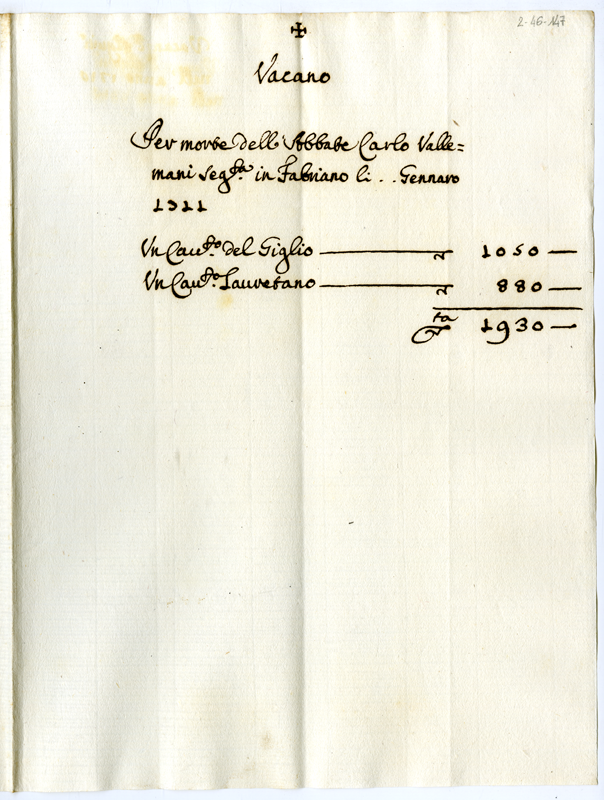 2-46-147
✠
Vacano
Per morte dell Abbate Carlo Valle=
mani seg.ta in Fabriano li . . Gennaro
1711
Un Cau.to del Giglio 1050 —
Un Cau.to Lauretano 880 —
1930 —